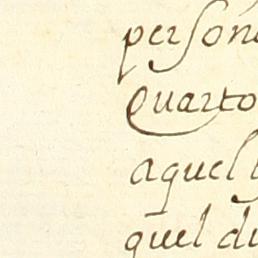 person
Quarto
aquel
quel di